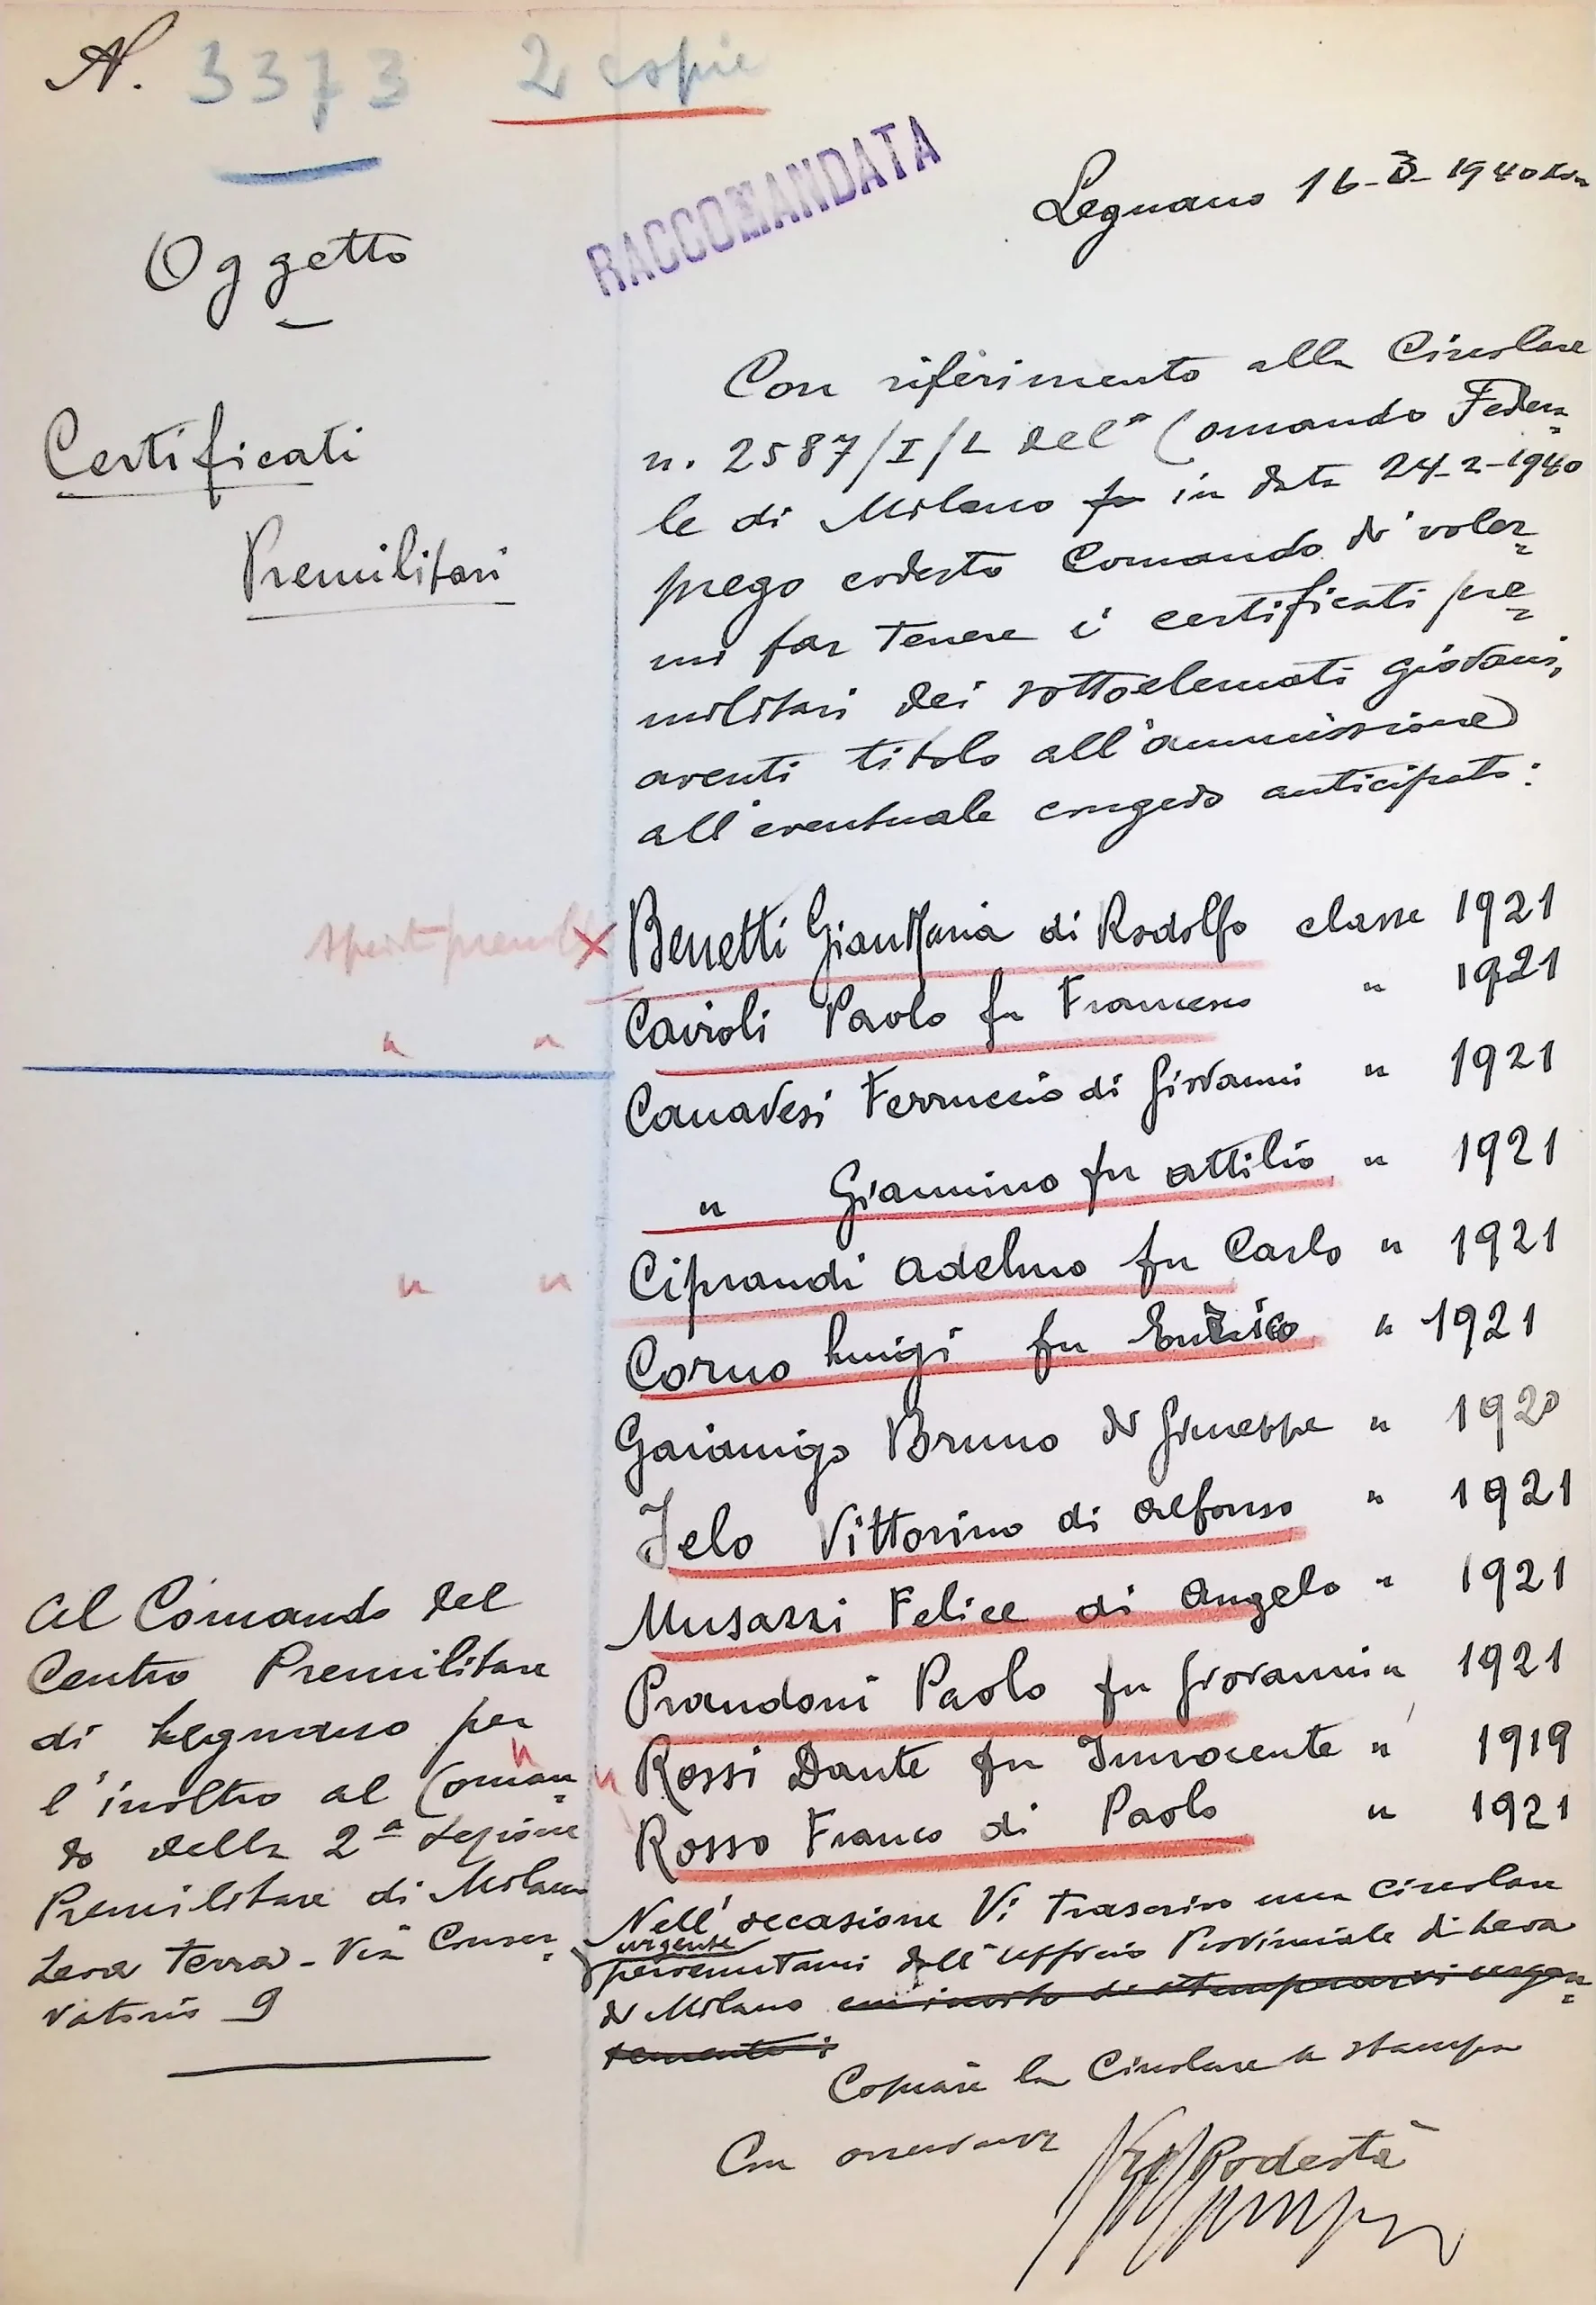 N. 3373 2 copie
RACCOMANDATA
Legnano 16-3-1940
Oggetto
Certificati
Premilitari
Con riferimento alla Circolare
n. 2587/I/L del Comando Federa=
le di Milano fu in data 24-2-1940
prego codesto Comando di voler=
mi far tenere i certificati pre=
militari dei sottoelencati giovani,
aventi titolo all'ammissione
all'eventuale congedo anticipato:
sport premil X Benetti GianMaria di Rodolfo classe 1921
" " Cairoli Paolo fu Francesco " 1921
Canavesi Ferruccio di Giovanni " 1921
" Giannino fu Attilio " 1921
" " Ciprandi Adelmo fu Carlo " 1921
Corno Luigi fu Enrico " 1921
Gaianigo Bruno di Giuseppe " 1920
Jelo Vittorino di Alfonso " 1921
Musazzi Felice di Angelo " 1921
Prandoni Paolo fu Giovanni " 1921
" " Rossi Dante fu Innocente " 1919
Rosso Franco di Paolo " 1921
Nell'occasione Vi trascrivo una circolare
urgente
pervenutami dall'Ufficio Provinciale di Leva
di Milano con invito di ottemperarvi urgen=
temente:
Copiare la Circolare a stampa
Con osservanza
Podestà
Al Comando del
Centro Premilitare
di Legnano per
l'inoltro al Coman=
do della 2ª Legione
Premilitare di Milano
Leva Terra - Via Conser=
vatorio 9